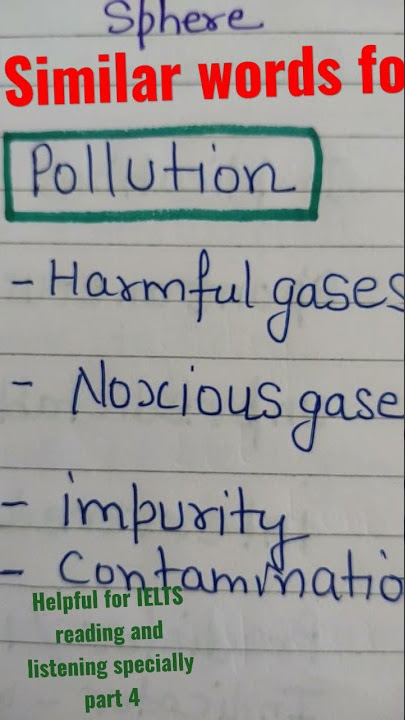 Sphere
Similar words fo
Pollution
- Harmful gases
- Noxious gase
- impurity
- Contaminatio
Helpful for IELTS
reading and
listening specially
part 4